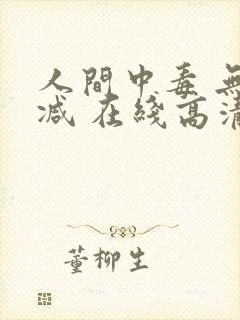 人間中毒 無
减 在綫高清
董柳生